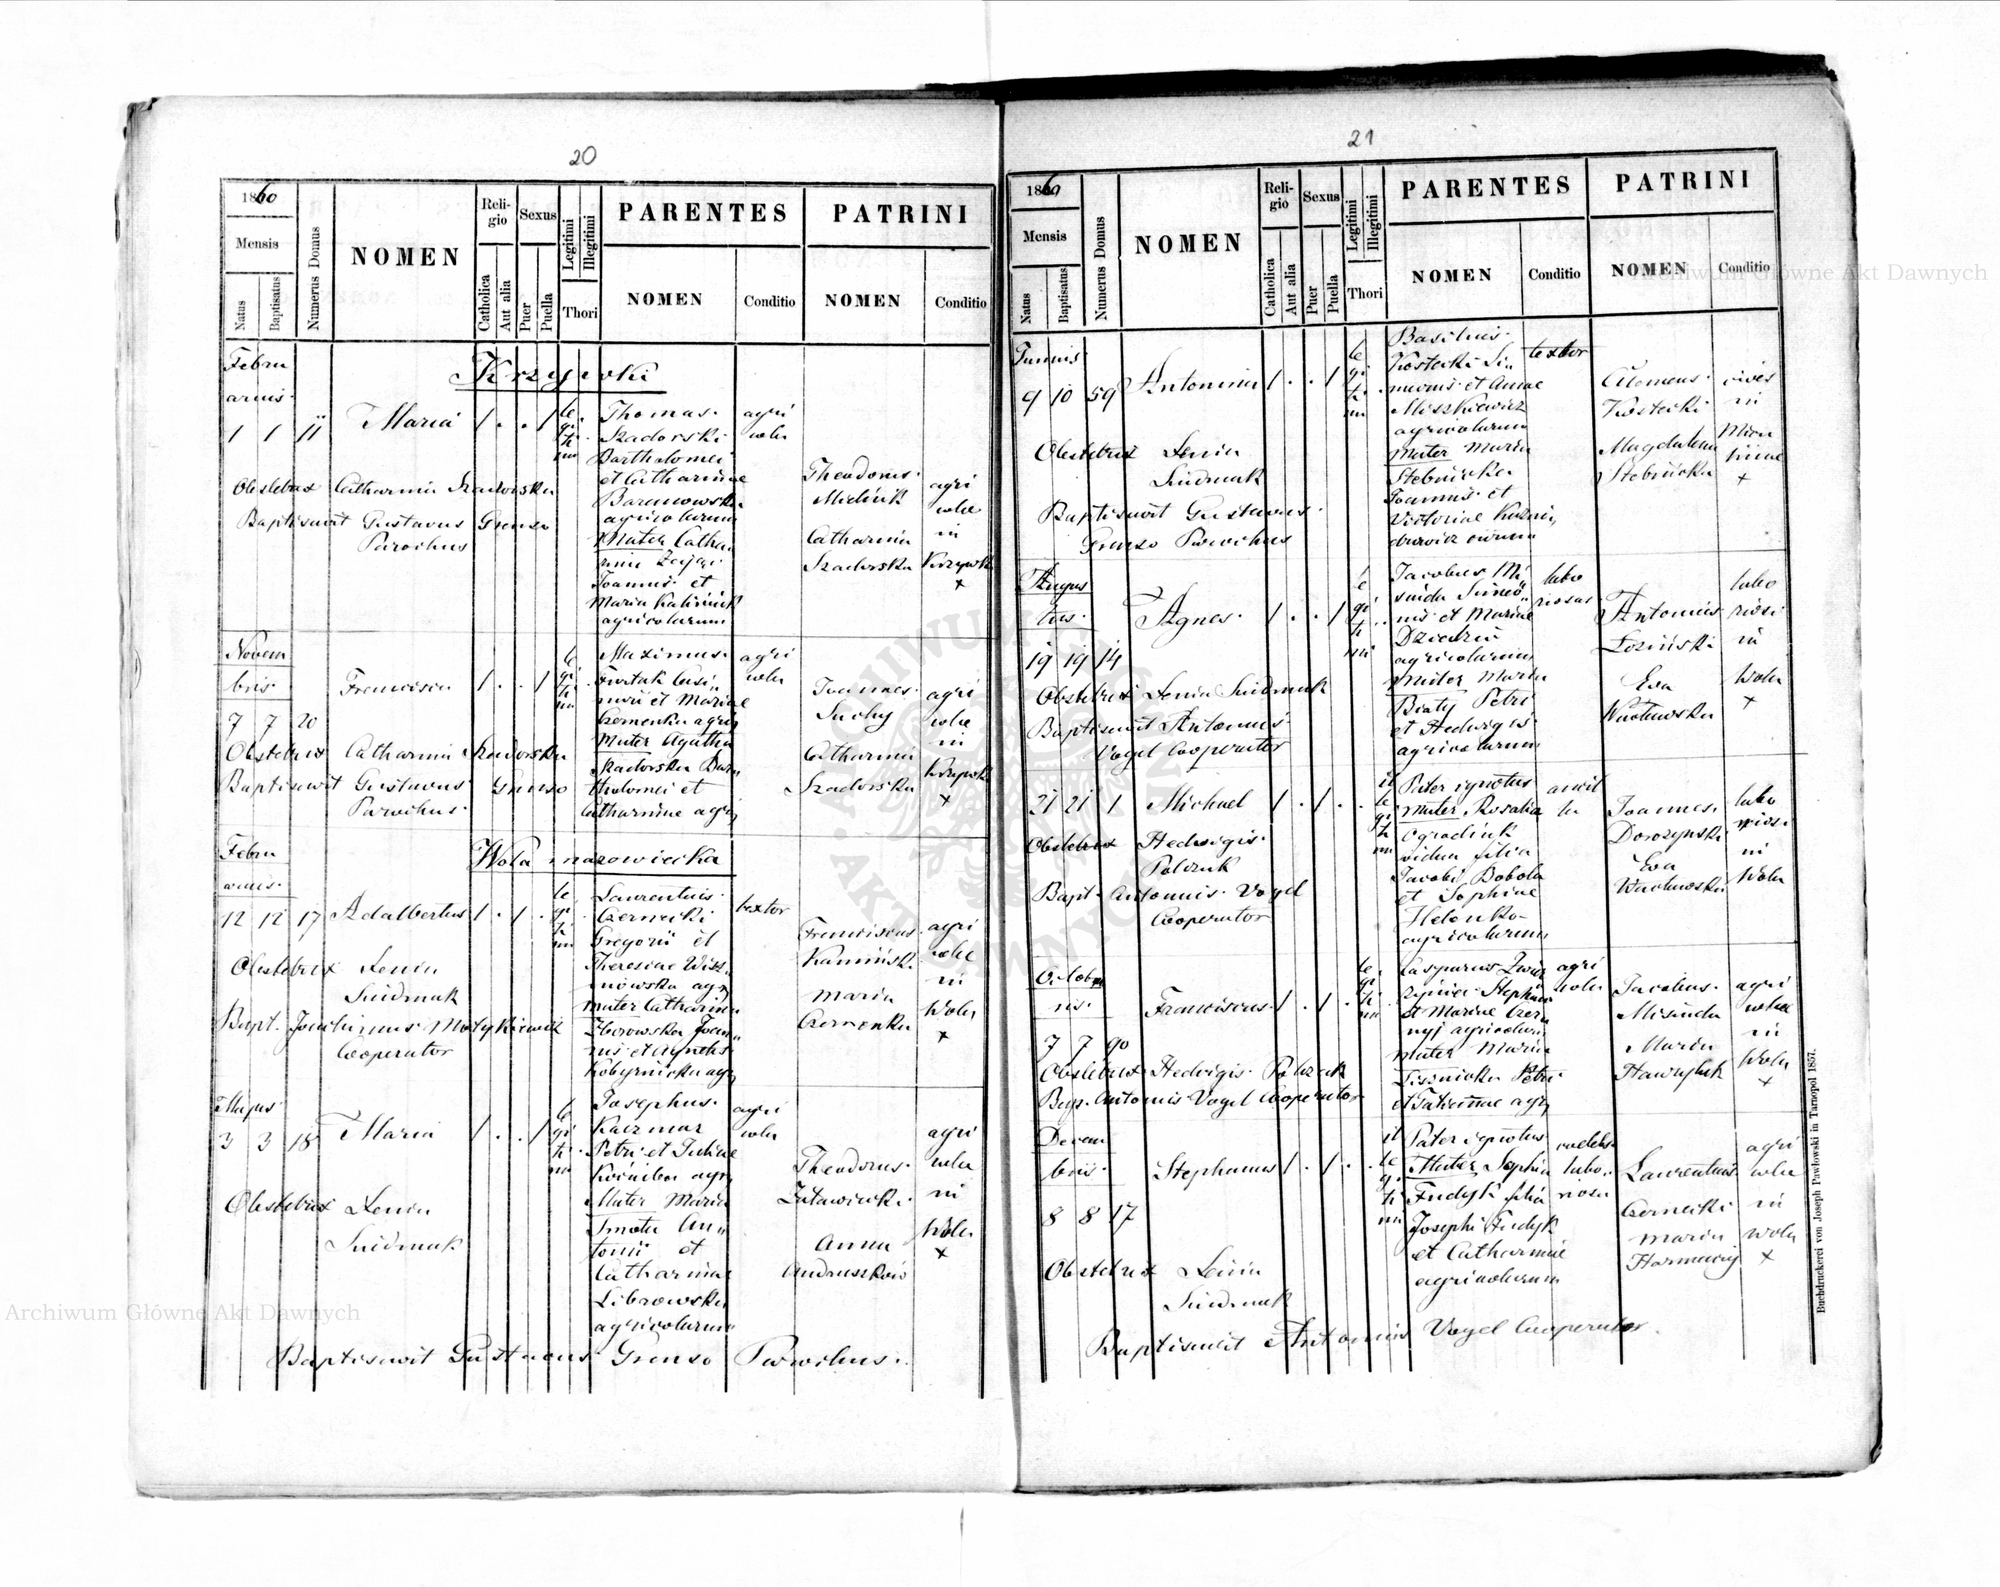 20
1860
Mensis
Natus
Baptisatus
Numerus Domus
NOMEN
Religio
Catholica
Aut alia
Sexus
Puer
Puella
Legitimi
Illegitimi
Thori
PARENTES
NOMEN
Conditio
PATRINI
NOMEN
Conditio
Krzywki
Febru
arius
1 1 11 Maria 1 . . 1
le
gi
ti
mi
Thomas
Szadorski
Bartholomei
et Catharinae
Baranowska
agricolarum
Mater Catha
rina
Joannis et
Maria Kaliniuk
agricolarum
agri
cola
Theodorus
Catharina
Szadorska
agri
colae
in
Krzywki
+
Obstetrix Catharina Szadorska
Baptisavit Gustavus Grenso
Parochus
Novem
bris
7 7 20 Francisca 1 . . 1
le
gi
ti
mi
Maximus
Furtak Casi
miri et Mariae
Czernenka agri
Mater Agatha
Szadorska Bar
tholomei et
Catharinae agri
agri
cola
Joannes
Suchy
Catharina
Szadorska
agri
colae
in
Krzywki
+
Obstetrix Catharina Szadorska
Baptisavit Gustavus Grenso
Parochus
Wola mazowiecka
Febru
arius
12 12 17 Adalbertus 1 . 1 .
le
gi
ti
mi
Laurentius
Czernecki
Gregorii et
Theresiae Wisz
niowska agri
Mater Catharina
Zborowska Joan
nis et Agnetis
Kobyrnicka agri
textor
Franciscus
Kaminski
Maria
Czernenka
agri
colae
in
Wola
+
Obstetrix Xenia
Suidmak
Bapt. Joachimus Motykiewicz
Cooperator
Majus
3 3 18 Maria 1 . . 1
le
gi
ti
mi
Josephus
Kaczmar
Petri et Juliae
agri
Mater Maria
An
tonii et
Catharinae
Librowska
agricolarum
agri
cola
Theodorus
Anna
agri
colae
in
Wola
+
Obstetrix Xenia
Suidmak
Baptisavit Gustavus Grenso Parochus
21
1860
Mensis
Natus
Baptisatus
Numerus Domus
NOMEN
Religio
Catholica
Aut alia
Sexus
Puer
Puella
Legitimi
Illegitimi
Thori
PARENTES
NOMEN
Conditio
PATRINI
NOMEN
Conditio
Junius
9 10 59 Antonina 1 . . 1
le
gi
ti
mi
Basilius
Kostecki Si
meonis et Annae
Miszkiewicz
agricolarum
Mater Maria
Stebnicka
Joannis et
Victoriae
textor
Clemens
Kostecki
Magdalena
Stebnicka
cives
in
+
Obstetrix Xenia
Suidmak
Baptisavit Gustavus
Grenso Parochus
Augus
tus
19 19 14 Agnes 1 . . 1
le
gi
ti
mi
Jacobus Mi
siuda Simeo
nis et Mariae
agricolarum
Mater Maria
Biały Petri
et Hedvigis
agricolarum
labo
riosus
Antonius
Łoziński
Eva
Wachowska
labo
riosi
in
Wola
+
Obstetrix Xenia Suidmak
Baptisavit Antonius
Vogel Cooperator
21 21 1 Michael 1 . 1 .
il
le
gi
ti
mi
Pater ignotus
Mater Rosalia
Ogrodnik
vidua filia
Jacobi Bobola
et Sophiae
agricolarum
ancil
la
Joannes
Dorozynski
Eva
Wachowska
labo
riosi
in
Wola
Obstetrix Hedwigis
Polczuk
Bapt. Antonius Vogel
Cooperator
Octobr
ris
7 7 90 Franciscus 1 . 1 .
le
gi
ti
mi
Casparus
Stephani
et Mariae Czer
nyj agricolarum
Mater Maria
Petri
et Tatiannae agri
agri
cola
Jacobus
Misiuda
Maria
Hawryluk
agri
colae
in
Wola
+
Obstetrix Hedvigis Polczuk
Bap. Antonius Vogel Cooperator
Decem
bris
8 8 17 Stephanus 1 . 1 .
il
le
gi
ti
mi
Pater ignotus
Mater Sophia
Fudyk filia
Josephi Fudyk
et Catharinae
agricolarum
caelebs
labo
riosa
Laurentius
Czernecki
Maria
agri
colae
in
Wola
+
Obstetrix Xenia
Suidmak
Baptisavit Antonius Vogel Cooperator
Buchdruckerei von Joseph Pawłowski in Tarnopol 1857.
Archiwum Główne Akt Dawnych
Archiwum Główne Akt Dawnych